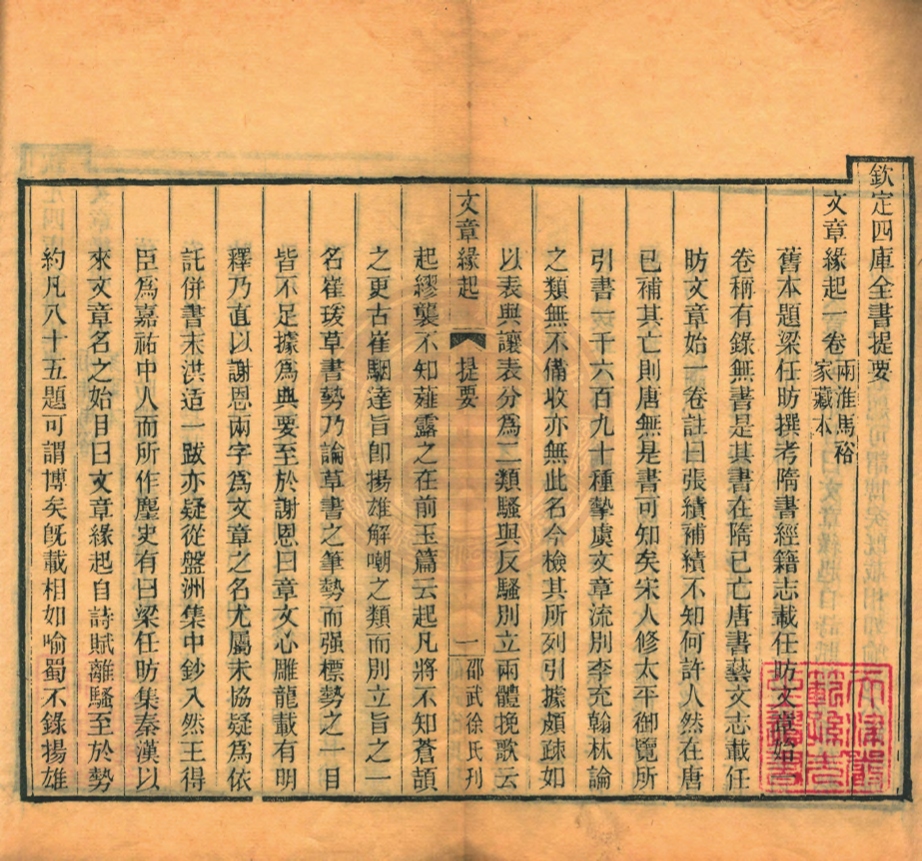 欽定四庫全書提要
文章緣起一卷兩淮馬裕家藏本
舊本題梁任昉撰考隋書經籍志載任昉文章始一
卷稱有錄無書是其書在隋已亡唐書藝文志載任
昉文章始一卷註曰張績補績不知何許人然在唐
已補其亡則唐無是書可知矣宋人修太平御覽所
引書一千六百九十種摯虞文章流別李充翰林論
之類無不備收亦無此名今檢其所列引據頗疎如
以表與讓表分爲二類騷與反騷別立兩體挽歌云
文章緣起 提要 一 邵武徐氏刋
起繆襲不知薤露之在前玉篇云起凡將不知蒼頡
之更古崔駰達旨卽揚雄解嘲之類而別立旨之一
名崔瑗草書勢乃論草書之筆勢而强標勢之一目
皆不足據爲典要至於謝恩曰章文心雕龍載有明
釋乃直以謝恩兩字爲文章之名尤屬未協疑爲依
託併書末洪适一跋亦疑從盤洲集中鈔入然王得
臣爲嘉祐中人而所作麈史有曰梁任昉集秦漢以
來文章名之始目曰文章緣起自詩賦離騷至於勢
約凡八十五題可謂博矣旣載相如喻蜀不錄揚雄